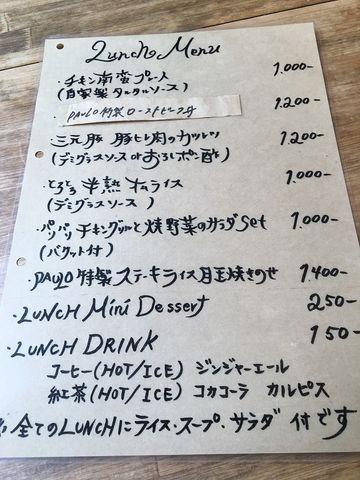 Lunch Menu
・チキン南蛮プレート 1,000-
(自家製タルタルソース)
・PAULO特製ローストビーフ丼 1,200-
・三元豚 豚ヒレ肉のカツレツ 1,200-
(デミグラスソース orおろしポン酢)
・とろとろ半熟オムライス 1,000-
(デミグラスソース)
・パリパリチキングリルと焼野菜のサラダSet 1,000-
(バケット付)
・PAULO特製ステーキライス目玉焼きのせ 1,400-
・LUNCH Mini Dessert 250-
・LUNCH DRINK 150-
コーヒー(HOT/ICE) ジンジャーエール
紅茶(HOT/ICE) コカコーラ カルピス
全てのLUNCHにライス・スープ・サラダ 付です